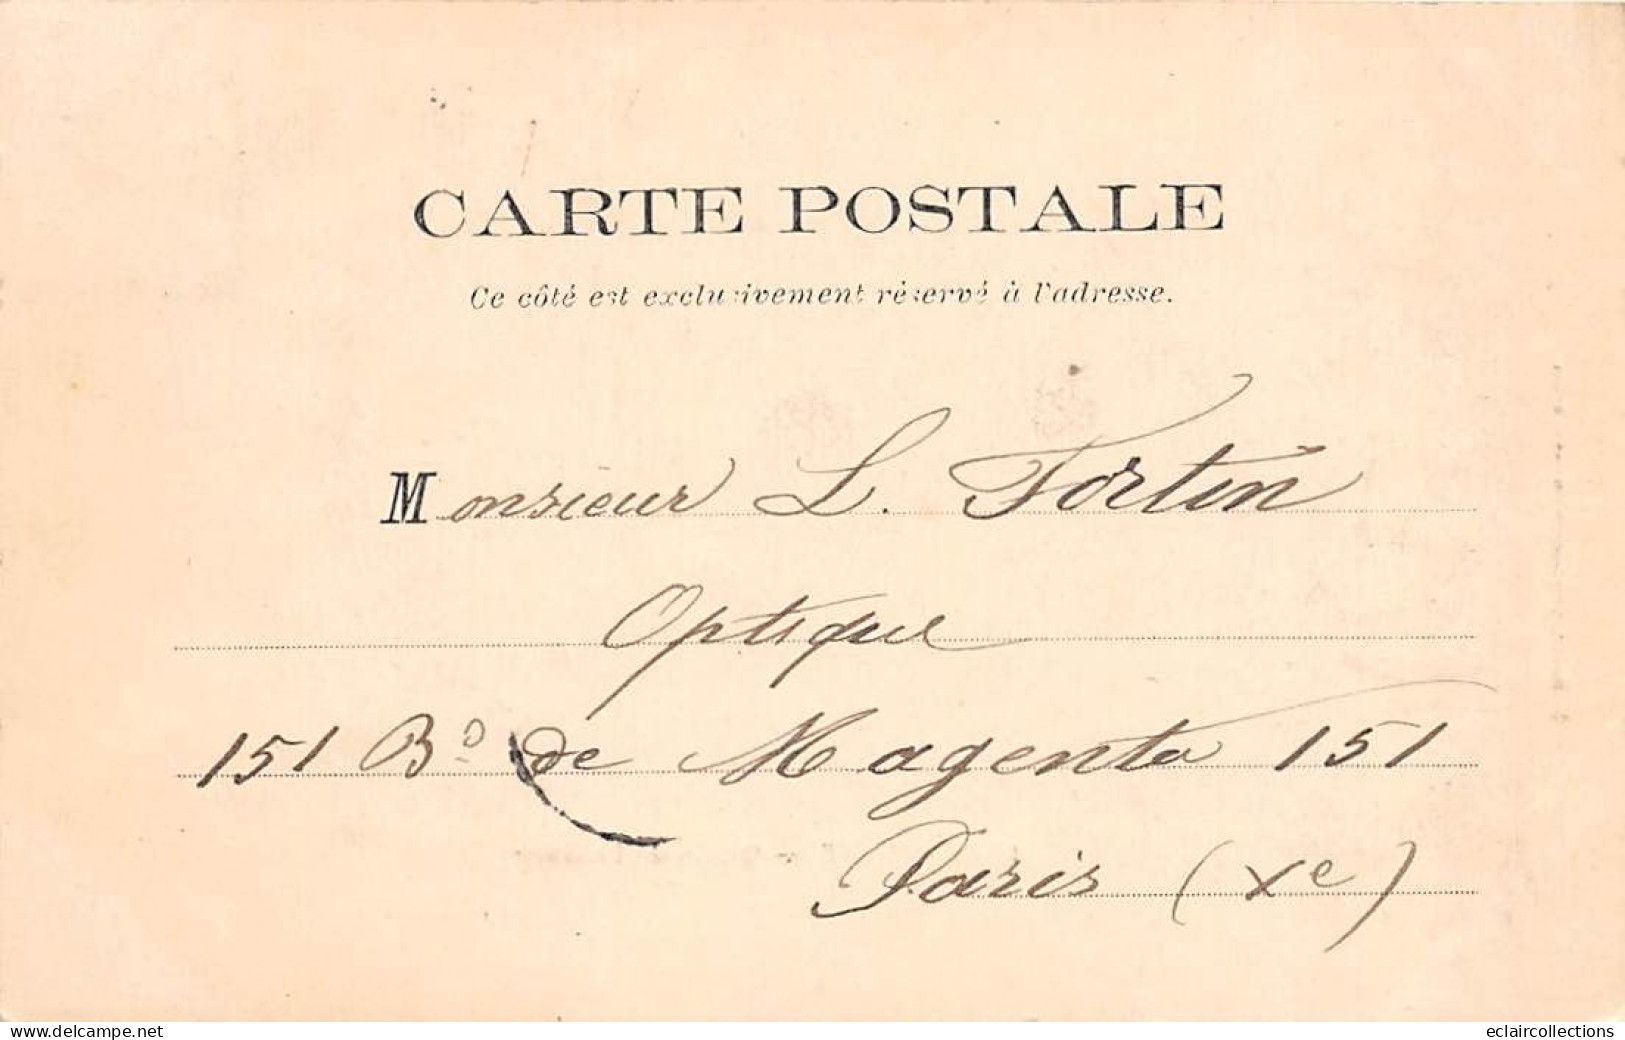 CARTE POSTALE
Ce côté est exclusivement réservé à l'adresse.
Monsieur L. Fortin
Optique
151 Bd de Magenta 151
Paris (Xe)
www.delcampe.net
eclaircollections